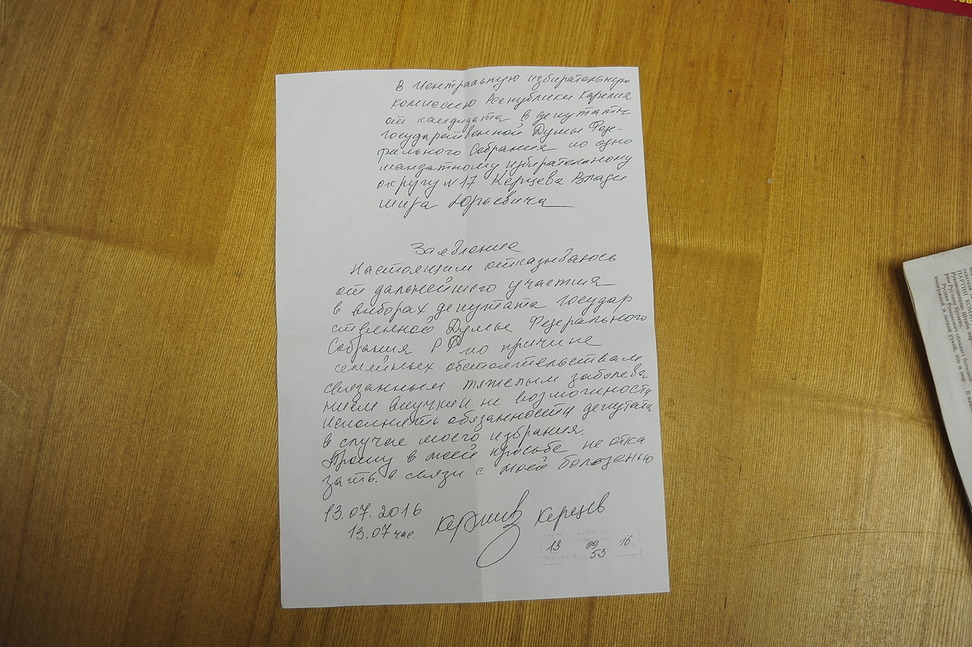 В Центральную избирательную
комиссию Республики Карелия
от кандидата в депутаты
государственной Думы Феде-
рального Собрания по одно
мандатному избирательному
округу №17 Керцева Влади
мира Юрьевича
Заявление
Настоящим отказываюсь
от дальнейшего участия
в выборах депутата Государ
ственной Думы Федерального
Собрания РФ по причине
семейных обстоятельствам
связанным тяжелым заболева
нием внучки и не возможность
исполнять обязанности депутата
в случае моего избрания.
Прошу в моей просьбе не отка
зать в связи с моей болезнью
13.07.2016
13.07 час
Керцев
13 09 16
53